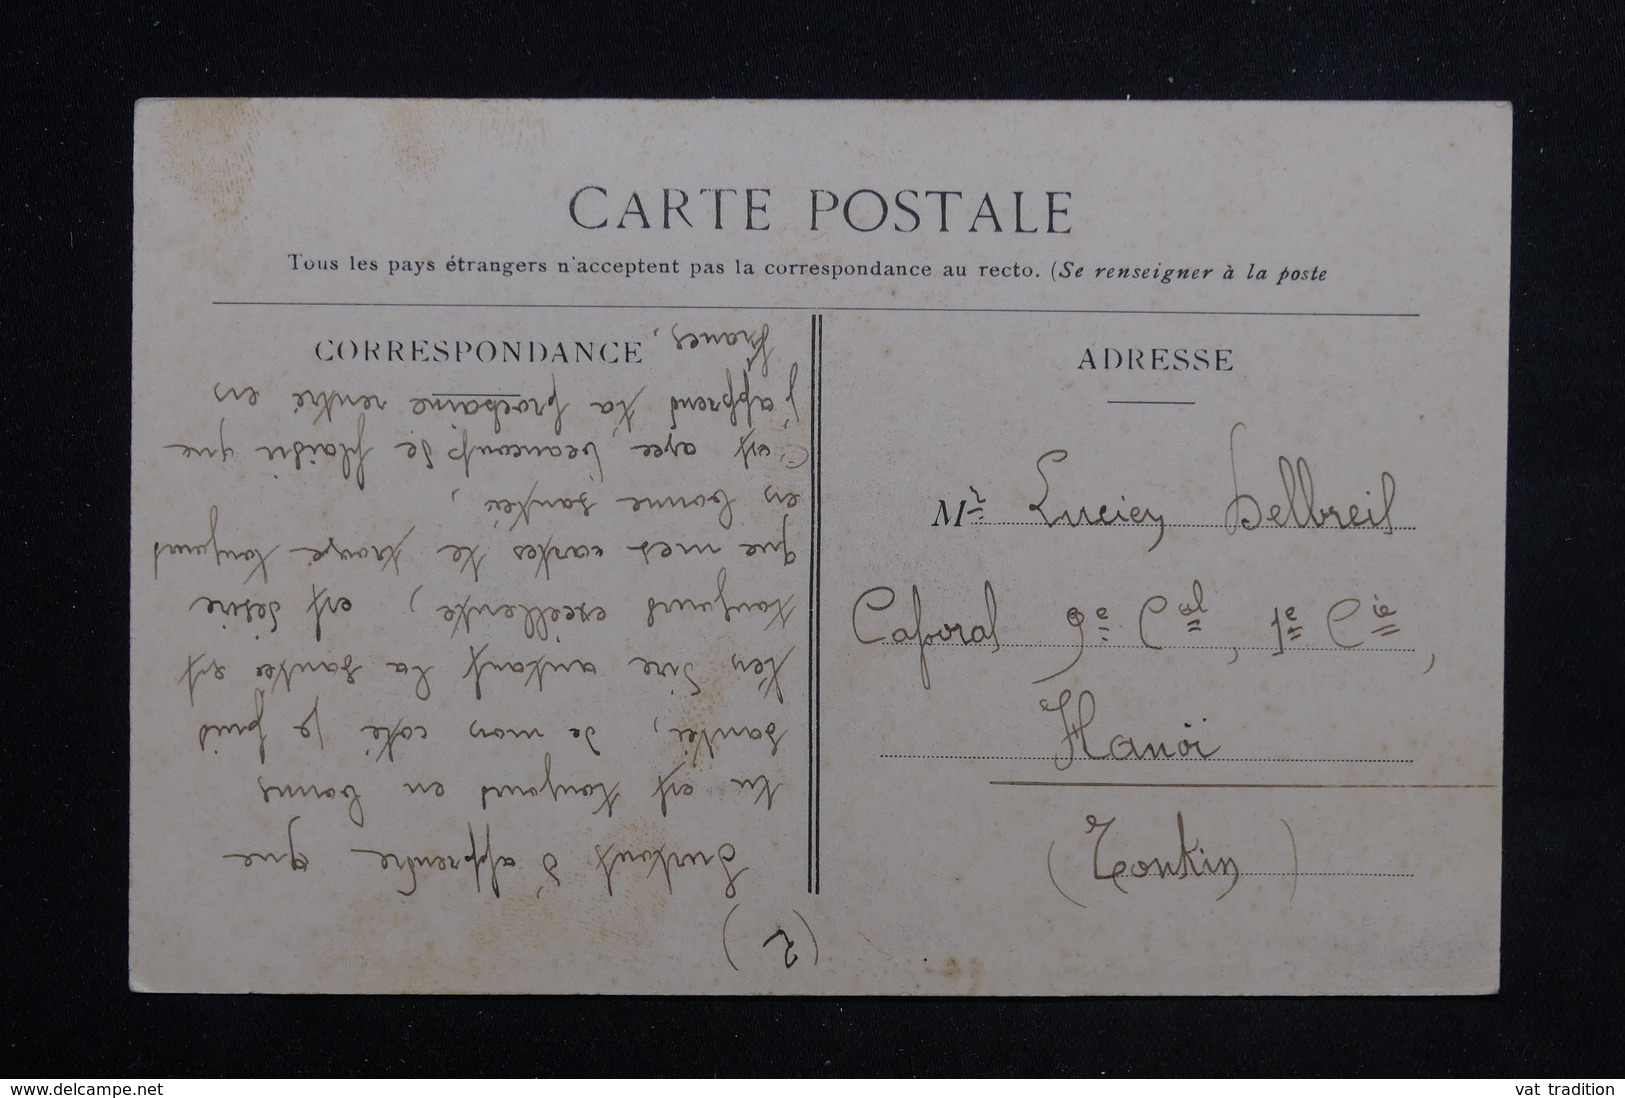 CARTE POSTALE
Tous les pays étrangers n'acceptent pas la correspondance au recto. (Se renseigner à la poste
CORRESPONDANCE
(2)
Surtout d'apprendre que
tu est toujours en bonne
santée, de mon coté je puis
t'en dire autant la santée est
toujours excellente, est désire
que mes cartes te trouve toujours
en bonne santée,
C'est avec beaucoup de plaisir que
j'apprend ta prochaine rentré en
France,
ADRESSE
Mr Lucien Delbreil
Caporal 9e Cal, 1e Cie,
Hanoï
(Tonkin)
www.delcampe.net
vat tradition